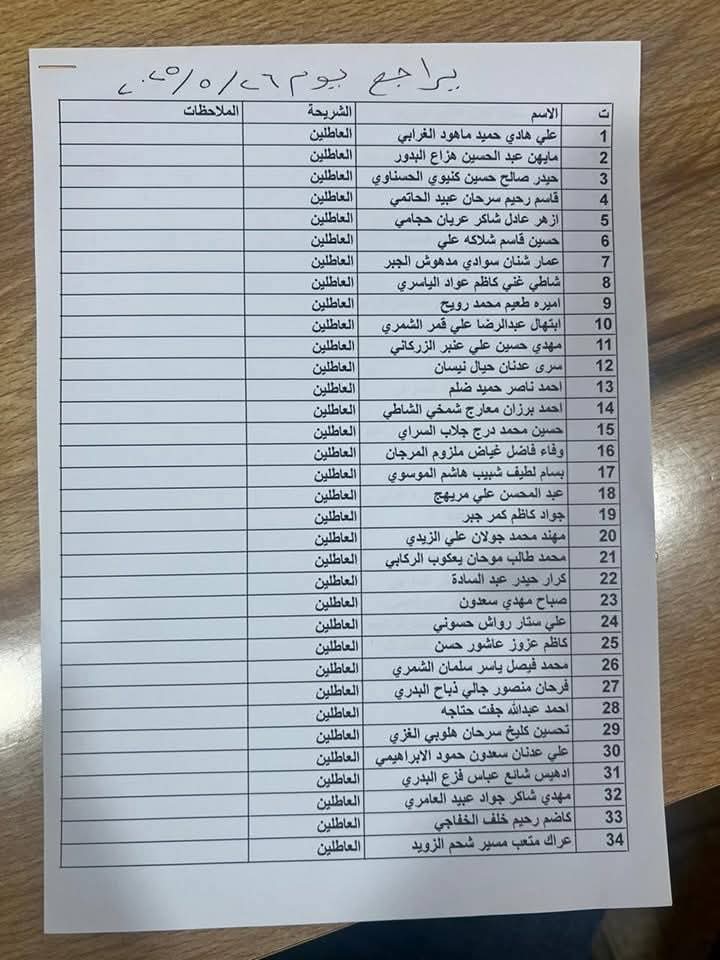 يراجع يوم ٢٦/٥/٢٠٢٥
ت الاسم الشريحة الملاحظات
1 علي هادي حميد ماهود الغرابي العاطلين
2 مايهن عبد الحسين هزاع البدور العاطلين
3 حيدر صالح حسين كنيوي الحسناوي العاطلين
4 قاسم رحيم سرحان عبيد الحاتمي العاطلين
5 ازهر عادل شاكر عريان حجامي العاطلين
6 حسين قاسم شلاكه علي العاطلين
7 عمار شنان سوادي مدهوش الجبر العاطلين
8 شاطي غني كاظم عواد الياسري العاطلين
9 اميره طعيم محمد رويح العاطلين
10 ابتهال عبدالرضا علي قمر الشمري العاطلين
11 مهدي حسين علي عنبر الزركاني العاطلين
12 سرى عدنان حيال نيسان العاطلين
13 احمد ناصر حميد ضلم العاطلين
14 احمد برزان معارج شمخي الشاطي العاطلين
15 حسين محمد درج جلاب السراي العاطلين
16 وفاء فاضل غياض ملزوم المرجان العاطلين
17 بسام لطيف شبيب هاشم الموسوي العاطلين
18 عبد المحسن علي مريهج العاطلين
19 جواد كاظم كمر جبر العاطلين
20 مهند محمد جولان علي الزيدي العاطلين
21 محمد طالب موحان يعكوب الركابي العاطلين
22 كرار حيدر عبد السادة العاطلين
23 صباح مهدي سعدون العاطلين
24 علي ستار رواش حسوني العاطلين
25 كاظم عزوز عاشور حسن العاطلين
26 محمد فيصل ياسر سلمان الشمري العاطلين
27 فرحان منصور جالي ذباح البدري العاطلين
28 احمد عبدالله جفت حتاجه العاطلين
29 تحسين كليخ سرحان هلوبي الغزي العاطلين
30 علي عدنان سعدون حمود الابراهيمي العاطلين
31 ادهيس شائع عباس فزع البدري العاطلين
32 مهدي شاكر جواد عبيد العامري العاطلين
33 كاضم رحيم خلف الخفاجي العاطلين
34 عراك متعب مسير شحم الزويد العاطلين